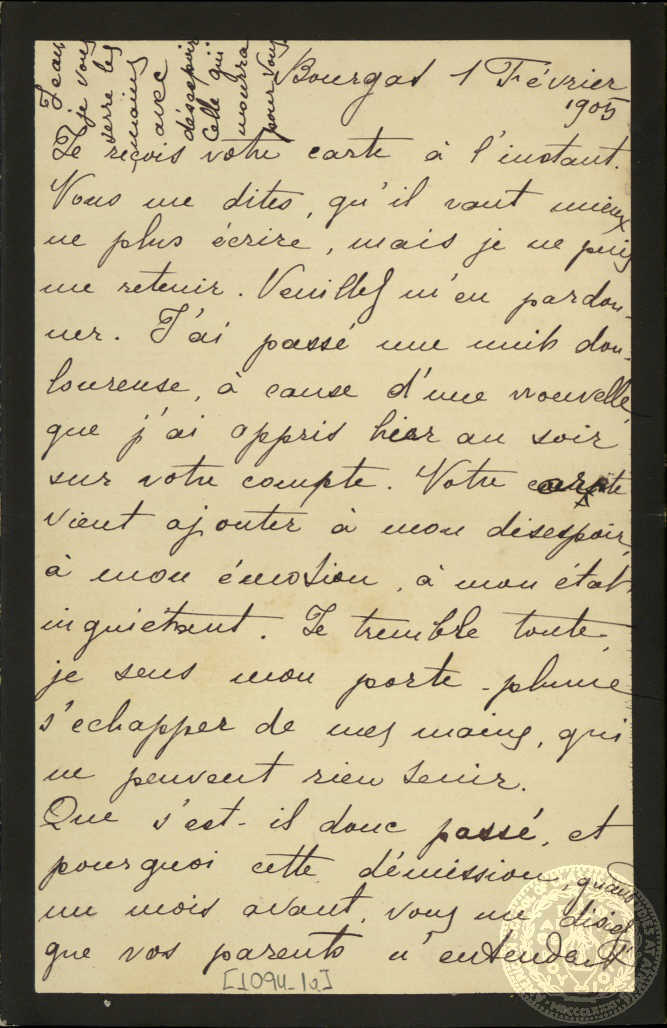 Bourgas 1 Février
1905
Je reçois votre carte à l'instant.
Vous me dites, qu'il vaut mieux
ne plus écrire, mais je ne puis
me retenir. Veuillez m'en pardon-
ner. J'ai passé une nuit dou-
loureuse, à cause d'une nouvelle
que j'ai appris hier au soir
sur votre compte. Votre carte
vient ajouter à mon désespoir,
à mon émotion, à mon état
inquiétant. Je tremble toute,
je sens mon porte-plume
s'echapper de mes mains, qui
ne peuvent rien tenir.
Que s'est-il donc passé, et
pourquoi cette démission, quand
un mois avant, vous me disiez
que vos parents n'entendent
Jean
je vous
serre les
mains
avec
désespoir
Celle qui
mourra
pour vous
[1094-1a]